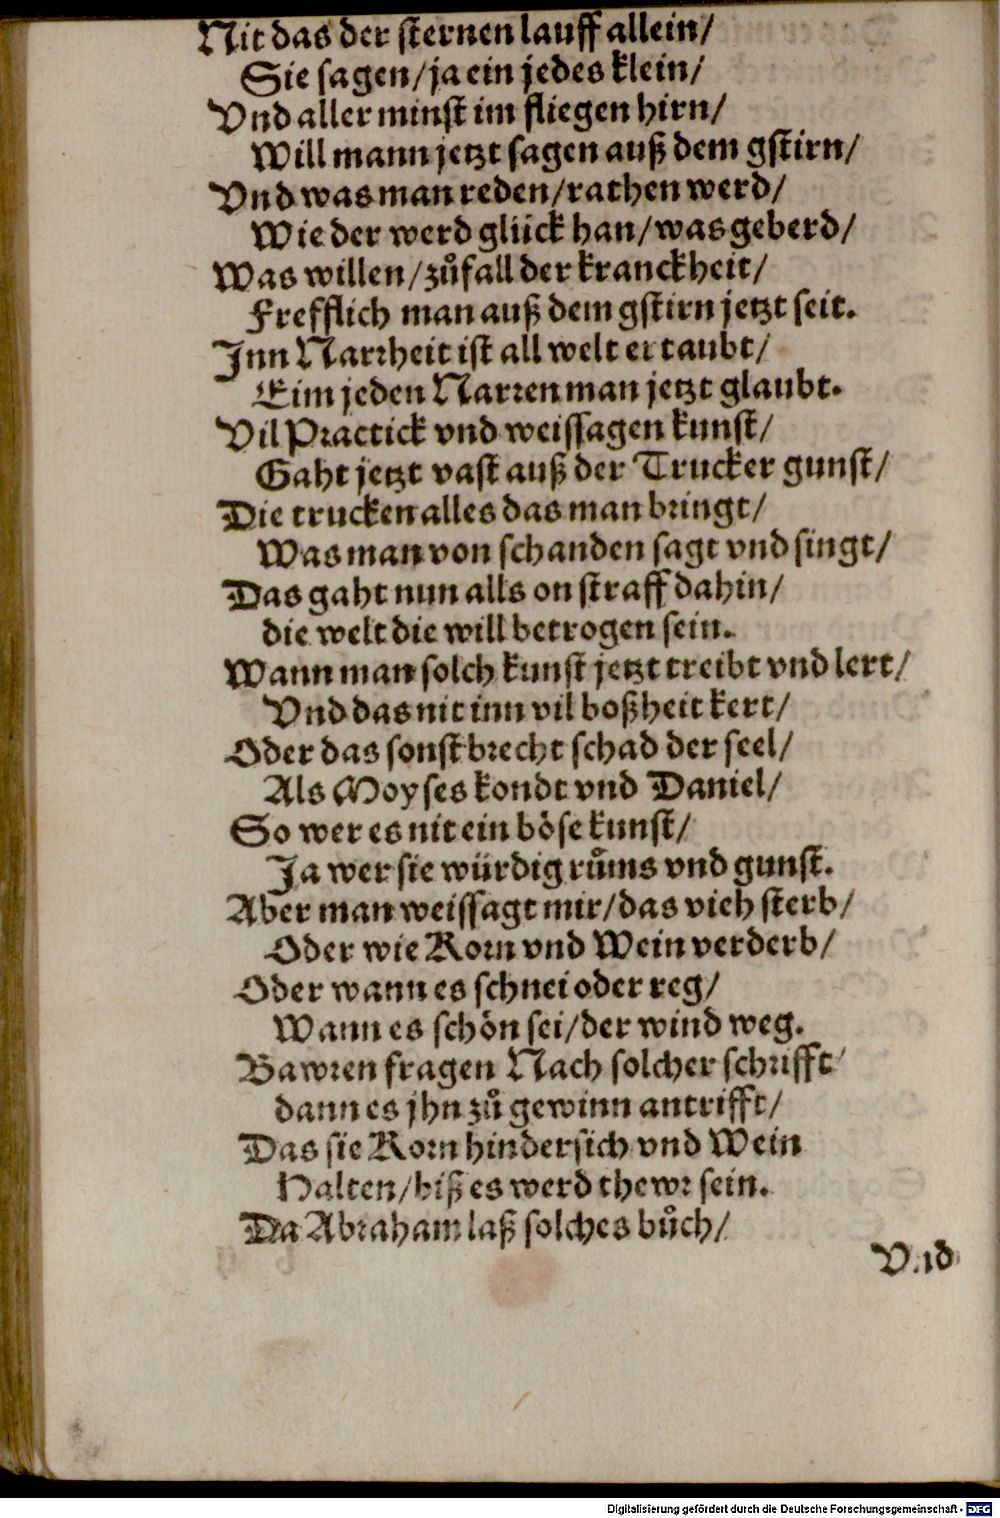 Nit das der sternen lauff allein/
Sie sagen/ja ein jedes klein/
Vnd aller minst im fliegen hirn/
Will mann jetzt sagen auß dem gstirn/
Vnd was man reden/rathen werd/
Wie der werd glück han/was geberd/
Was willen/zůfall der kranckheit/
Frefflich man auß dem gstirn jetzt seit.
Jnn Narrheit ist all welt ertaubt/
Eim jeden Narren man jetzt glaubt.
Vil Practick vnd weissagen kunst/
Gaht jetzt vast auß der Trucker gunst/
Die trucken alles das man bringt/
Was man von schanden sagt vnd singt/
Das gaht nun alls on straff dahin/
die welt die will betrogen sein.
Wann man solch kunst jetzt treibt vnd lert/
Vnd das nit inn vil boßheit kert/
Oder das sonst brecht schad der seel/
Als Moyses kondt vnd Daniel/
So wer es nit ein böse kunst/
Ja wer sie würdig růms vnd gunst.
Aber man weissagt mir/das vieh sterb/
Oder wie Korn vnd Wein verderb/
Oder wann es schnei oder reg/
Wann es schön sei/der wind weg.
Bawren fragen Nach solcher schrifft/
dann es jhn zů gewinn antrifft/
Das sie Korn hindersich vnd Wein
Halten/biß es werd thewr sein.
Da Abraham laß solches bůch/
Vnd
Digitalisierung gefördert durch die Deutsche Forschungsgemeinschaft - DFG